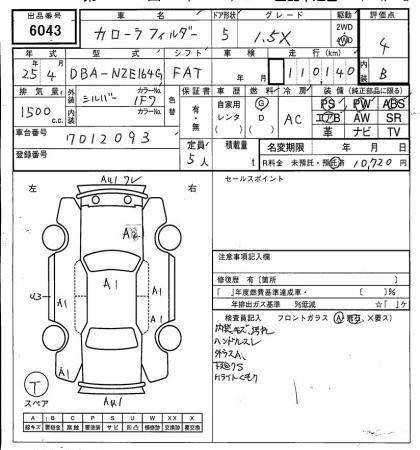 出品番号 車名 ドア形状 グレード 駆動 評価点
6043 カローラフィルダー 5 1.5X 2WD 4WD 4
年式 型式 シフト 車検 走行(km) 内装
25年4月 DBA-NZE164G FAT 年 月 110140 B
排気量 外装 シルバー カラーNo. 1F7 色替 保証書 車歴 燃料 冷房 装備(純正部品に限る)
1500 c.c. 内装 カラーNo. 有・無 自家用 レンタ G D AC PS PW ABS
エアB AW SR
革 ナビ TV
車台番号 7012093 定員 5人 積載量 t 名変期限 年 月 日
登録番号 R料金 未預託・預託済 10,720円
左 右 セールスポイント
A4リレ
A2
A1
A1
A1
A1
A1
T
スペア
A41
注意事項記入欄
修復歴 有(箇所 )
「 」年度燃費基準達成車・( )%
年排出ガス基準 %低減 ☆「 」ケ
検査員記入 フロントガラス (A・飛石、X要ス)
内装キズ、汚れ
ハンドルスレ
外ラスA
Hライトくもり
A B C P S U W XX X
線キズ 要板金 腐触 要塗装 サビ 凹凸 補修跡 交換跡 要交換